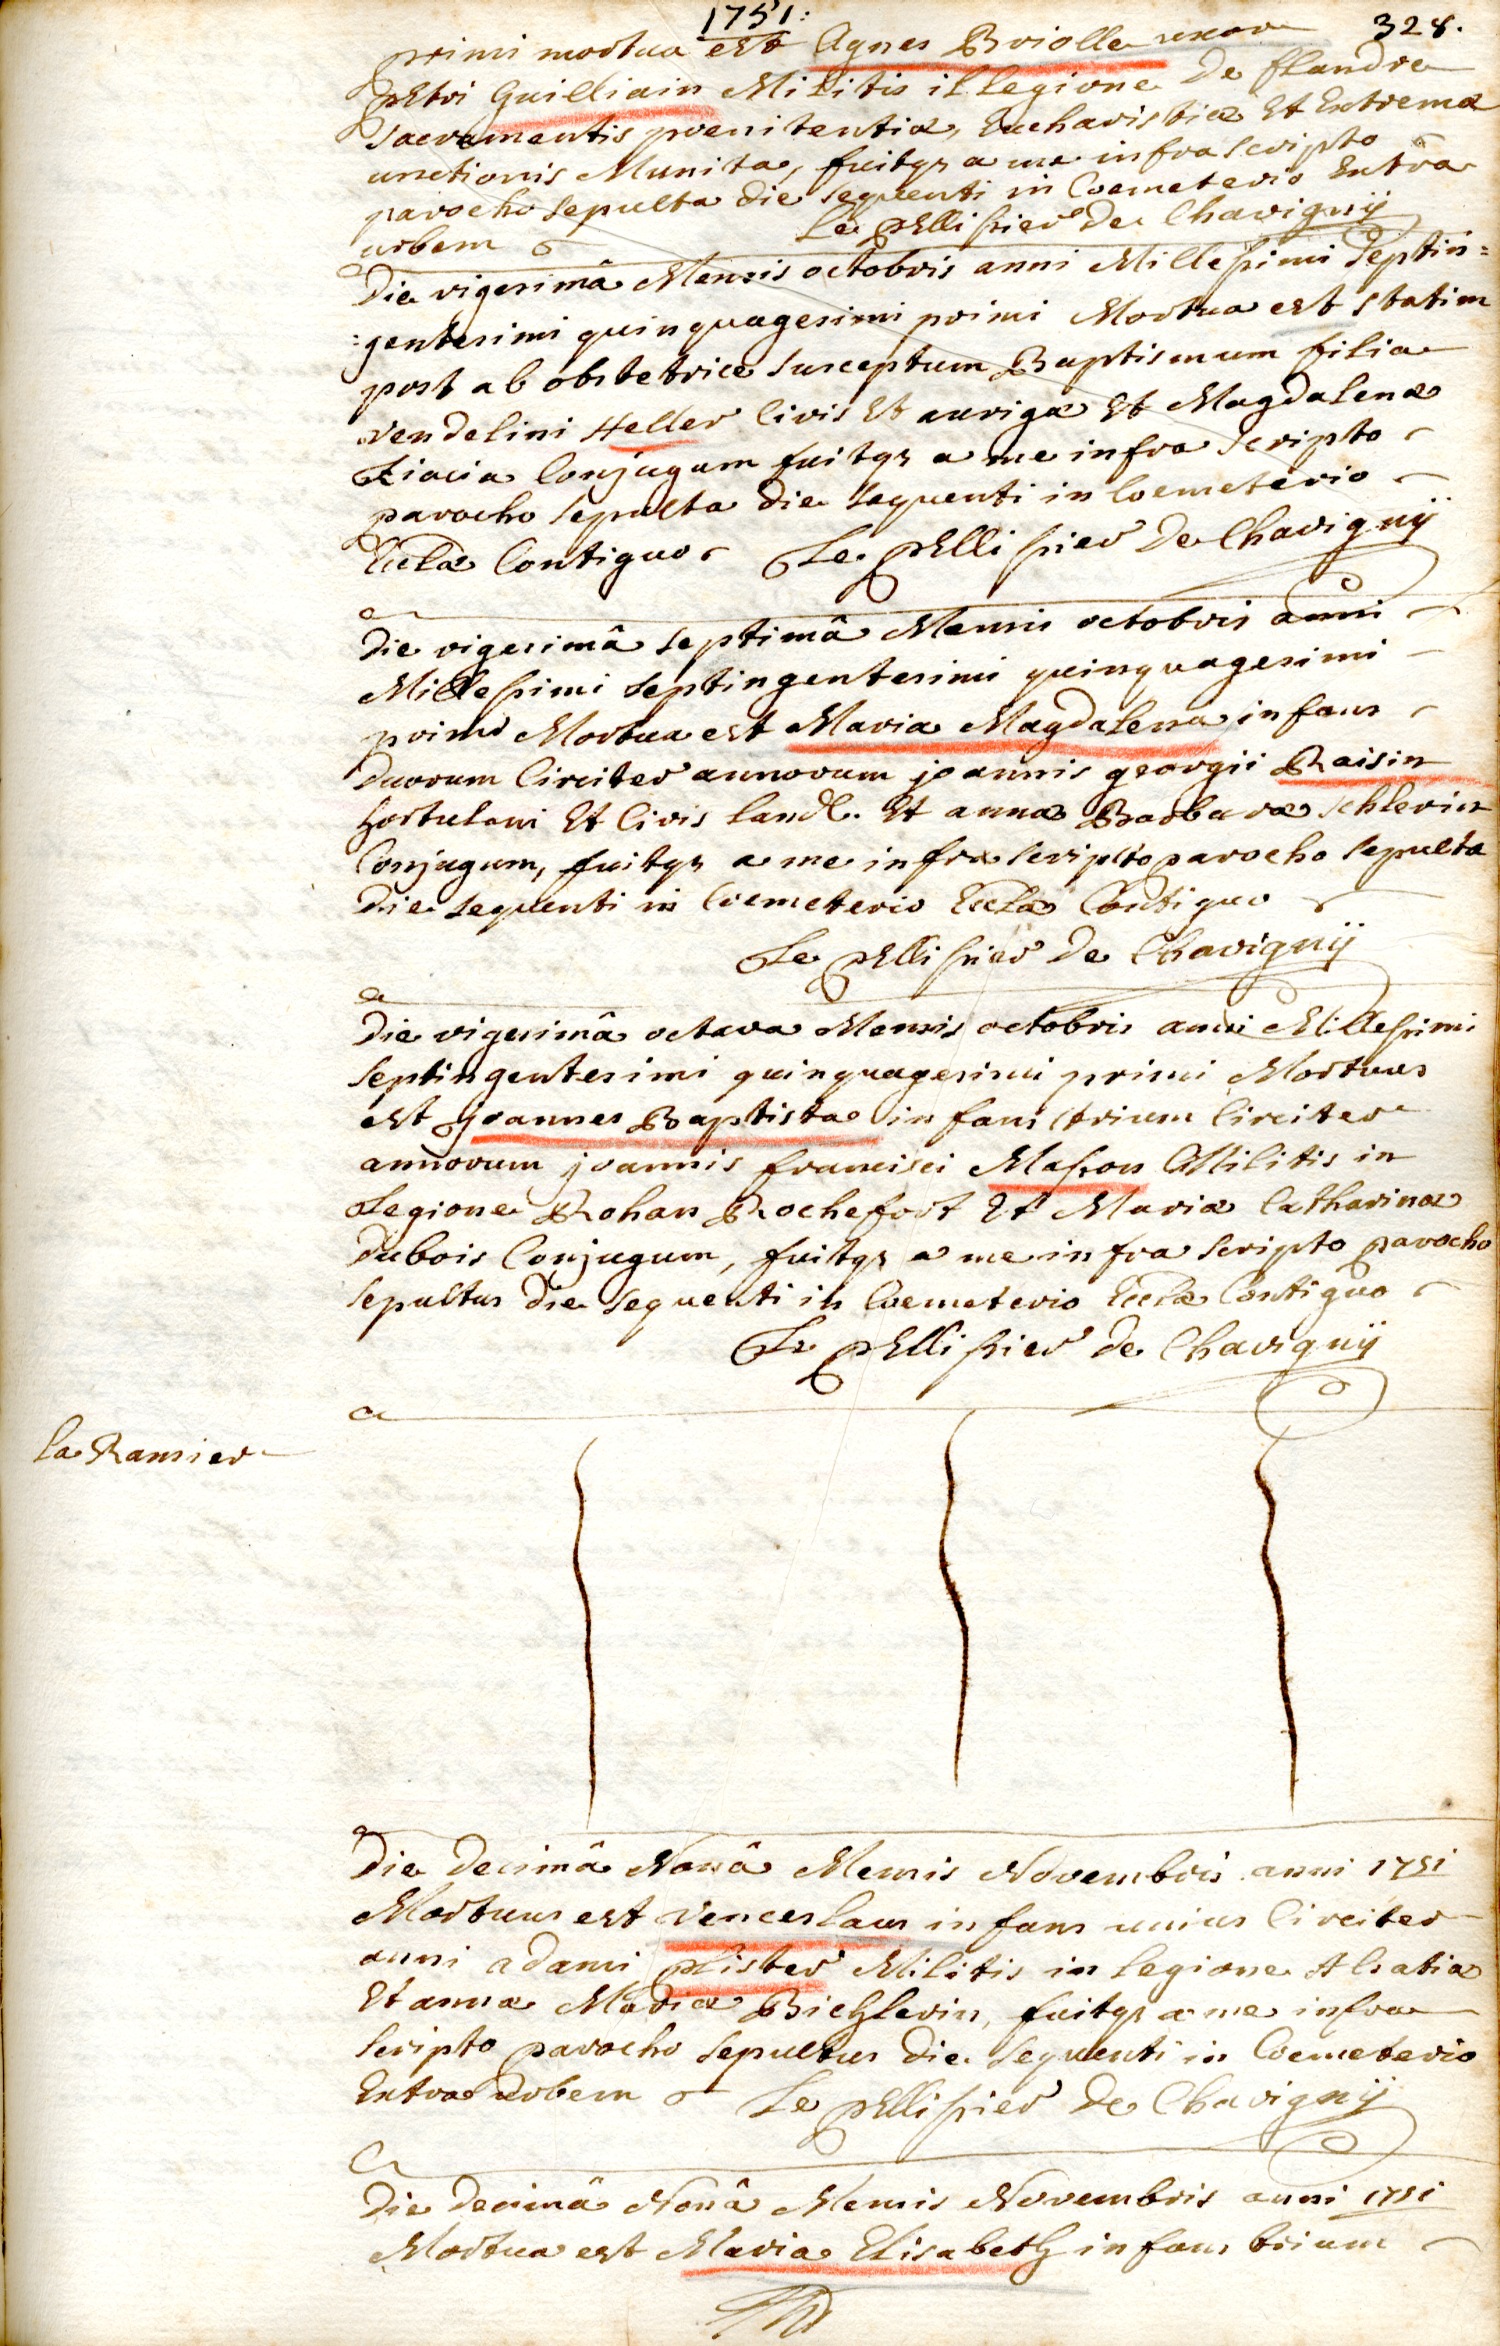 1751:
328.
primi mortua est Agnes Briolle uxor
petri Guilliain Militis il legione De flandre
sacramentis poenitentiæ, Eucharistiæ Et Extremæ
unctionis Munita, fuitqz a me infra scripto
parocho sepulta die sequenti in Coemeterio Extra
urbem Le pellissier De Chavignÿ
Die vigesimâ Mensis octobris anni Millesimi Septin=
=gentesimi quinquagesimi primi Mortua est statim
post ab obstetrice susceptum Baptismum filia
Vendelini Heller Civis Et aurigæ Et Magdalenæ
Conjugum fuitqz a me infra scripto
parocho sepulta die sequenti in Coemeterio
Eclæ Contiguo Le pellissier De Chavignÿ
Die vigesimâ septimâ Mensis octobris anni
Millesimi septingentesimi quinquagesimi
primi Mortua est Maria Magdalena infans
duorum Circiter annorum joannis georgii Raisin
hortulani Et Civis land. Et annæ Barbaræ schlerin
Conjugum, fuitqz a me infra scripto parocho sepulta
die sequenti in Coemeterio Eclæ Contiguo
Le pellissier De Chavignÿ
Die vigesimâ octava Mensis octobris anni Millesimi
septingentesimi quinquagesimi primi Mortuus
est joannes Baptista infans trium Circiter
annorum joannis francisci Masson Militis in
Legione Rohan Rochefort Et Mariæ Catharinæ
dubois Conjugum, fuitqz a me infra scripto parocho
sepultus die sequenti in Coemeterio Eclæ Contiguo
Le pellissier de Chavignÿ
la Ramier
Die decimâ Nonâ Mensis Novembris anni 1751
Mortuus est Venceslaus infans unius Circiter
anni adami plister Militis in legione Alsatiæ
Et annæ Mariæ Bichlerin, fuitqz a me infra
scripto parocho sepultus die sequenti in Coemeterio
Extra urbem Le pellissier De Chavignÿ
Die decimâ Nonâ Mensis Novembris anni 1751
Mortua est Maria Elisabeth infans trium